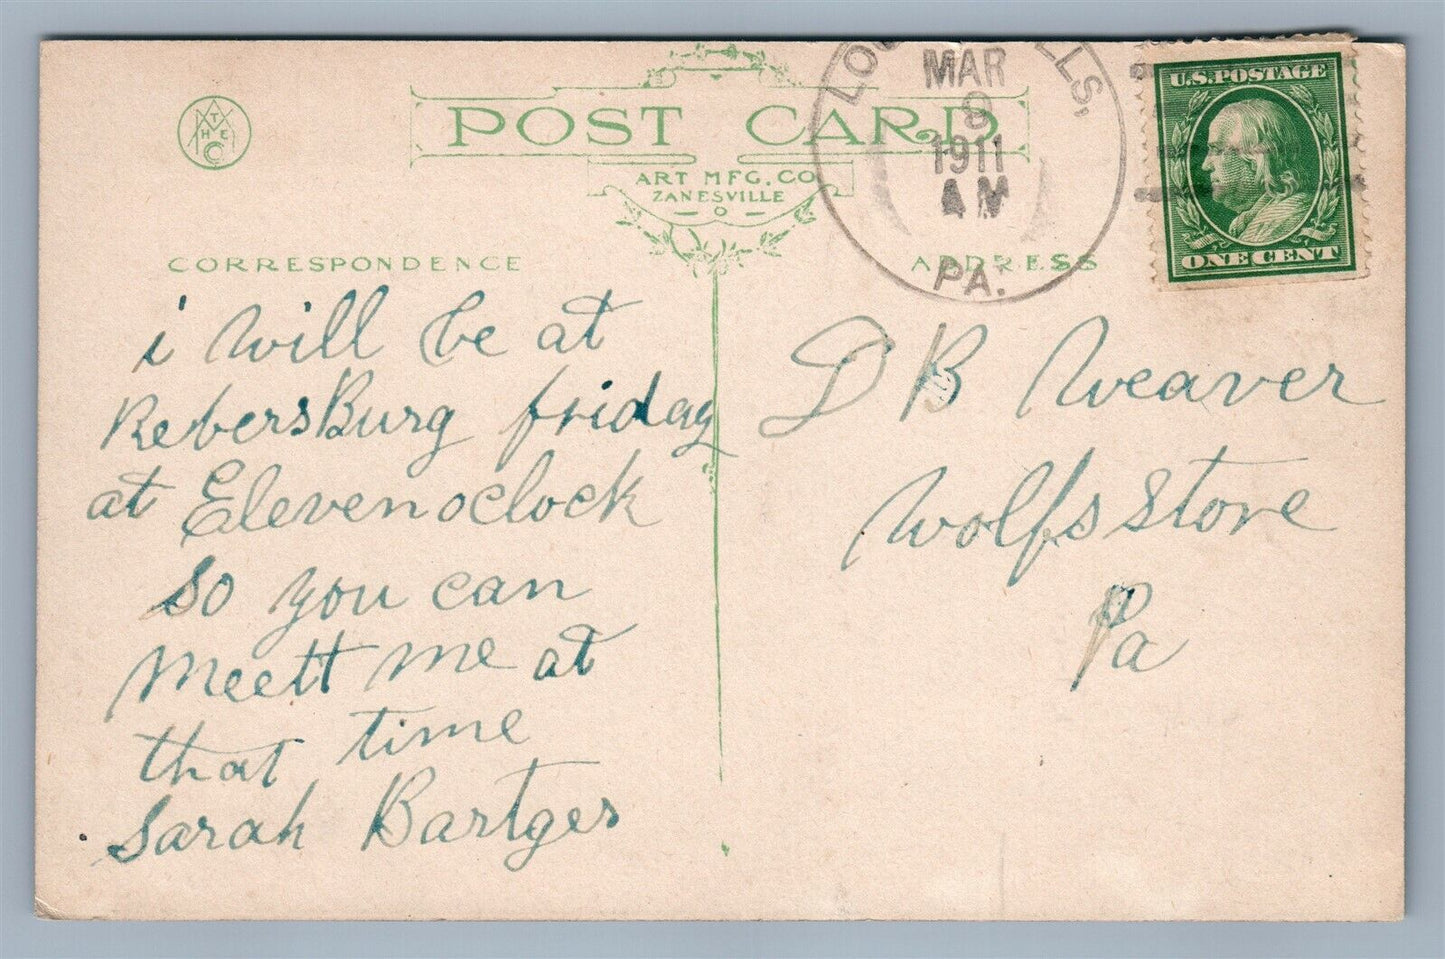 THE
POST CARD
ART MFG. CO
ZANESVILLE
O
CORRESPONDENCE
ADDRESS
MAR
1911
AM
PA.
U.S. POSTAGE
ONE CENT
i will be at
RebersBurg friday
at Eleven oclock
so you can
meett me at
that time
Sarah Bartges
D B Weaver
Wolfs Store
Pa